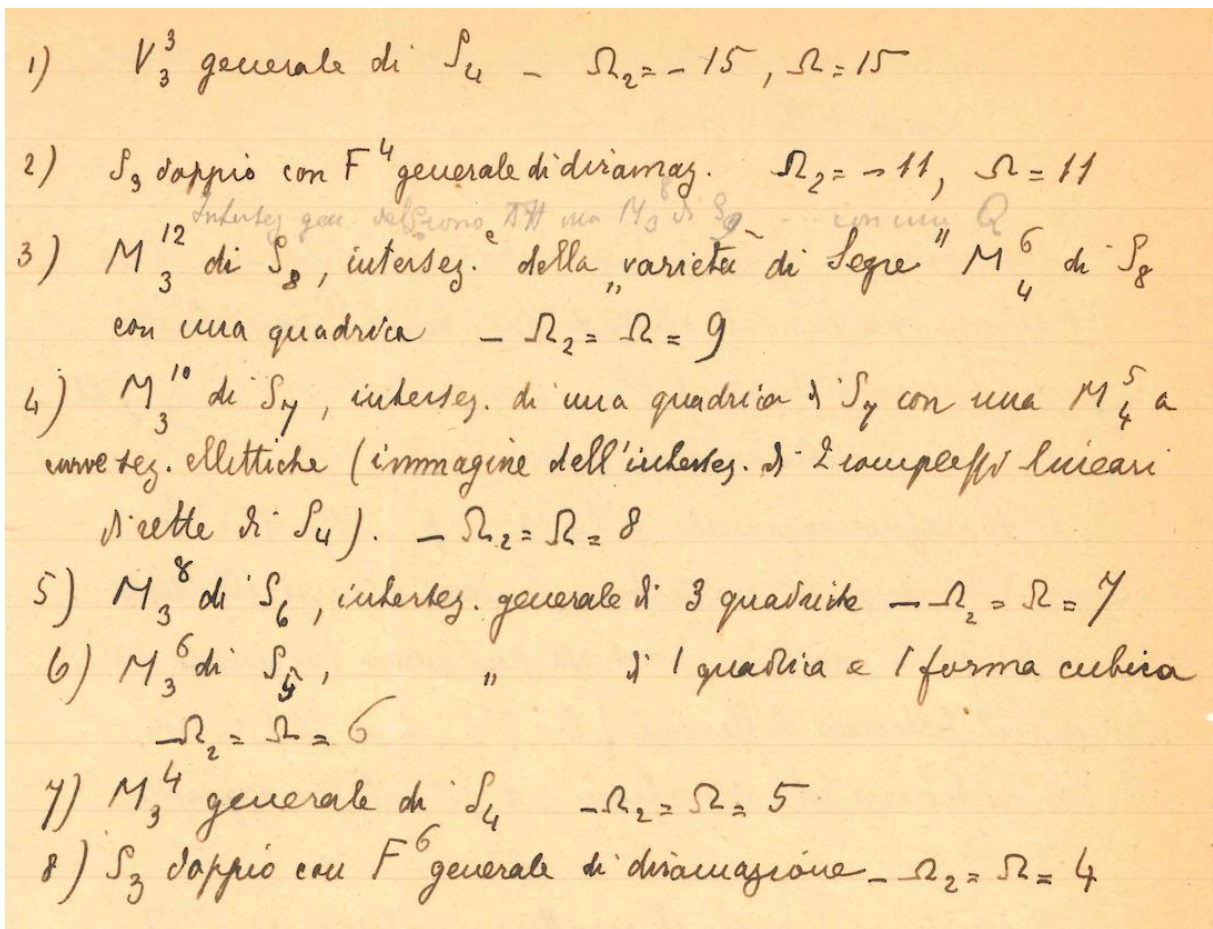 1) V₃³ generale di S₄ – Ω₂ = – 15, Ω = 15
2) S₃ doppio con F⁴ generale di diramaz. Ω₂ = – 11, Ω = 11
gen. M₃ con una Q
3) M₃¹² di S₈, intersez.ᵉ della „varietà di Segre" M₄⁶ di S₈
con una quadrica – Ω₂ = Ω = 9
4) M₃¹⁰ di S₇, intersez. di una quadrica di S₇ con una M₄⁵ a
curve sez. ellittiche (immagine dell'intersez. di 2 complessi lineari
di rette di S₄). – Ω₂ = Ω = 8
5) M₃⁸ di S₆, intersez. generale di 3 quadriche – Ω₂ = Ω = 7
6) M₃⁶ di S₅, „ di 1 quadrica e 1 forma cubica
– Ω₂ = Ω = 6
7) M₃⁴ generale di S₄ – Ω₂ = Ω = 5
8) S₃ doppio con F⁶ generale di diramazione – Ω₂ = Ω = 4